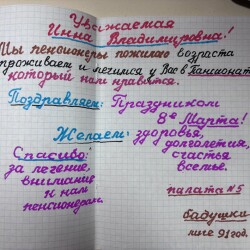 Уважаемая
Инна Владимировна!
Мы пенсионеры пожилаю возраста
проживаем и лечился у Вас в Пансионат
который нам нравятся.
Поздравляем: Праздником
8е Марта!
Желаем: здоровья,
долголетия,
счастья
веселье.
Спасибо:
за лечение,
внимания
к нам
пенсионерам.
палата №5
бадушки
мне 91 год.